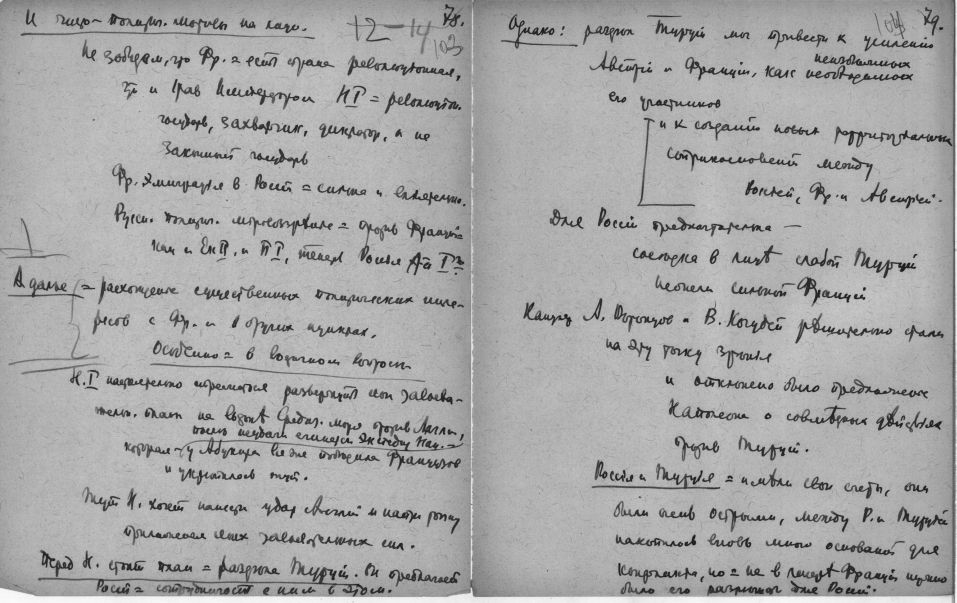 И чисто = политич. мотивы на лицо.
12–14
78.
103
Не забудем, что Фр. = есть страна революционная,
что и Император Н I = революцион.
государь, захватчик, диктатор, а не
законный государь
Фр. эмиграция в Росии = сильна и влиятельна.
Русск. политич. = против Франции
как и Ек II, и П I, теперь Россия А I
А далее = расхождение существенных политических инте-
ресов с Фр. и в других пунктах.
Особенно = в восточном вопросе
Н. I настоятельно стремится развернуть свои завоева-
тельн. планы на Средиз. море против Англии!
после неудачи египетск. экспедиц. Нап. =
которая у Абукира победила Французов
и укрепилась
Тут Н. хочет нанести удар Англии и найти точку
приложения своих завоевательных сил.
Перед Н. стоит план = раздела Турции. Он предлагает
Росии = сотрудничать с ним в этом.
79.
104
Однако: раздел Турции мог привести к усилению
неизбежных
Австрии и Франции, как необходимых
его участников
и к созданию новых территориальных
соприкосновений между
Россией, Фр. и Австрией.
Для Росии предпочтительна —
соседка в лице слабой Турции
нежели сильной Франции
Канцлер А. Воронцов и В. Кочубей решительно стали
на эту точку зрения
и отклонено было предложение
Наполеона о совместных действиях
против Турции.
Россия и Турция = имели свои счеты, они
были очень острыми, между Р. и Турцией
накопилось вновь много оснований для
конфликта, но = не в Франции нужно
было его разрешать для Росии.